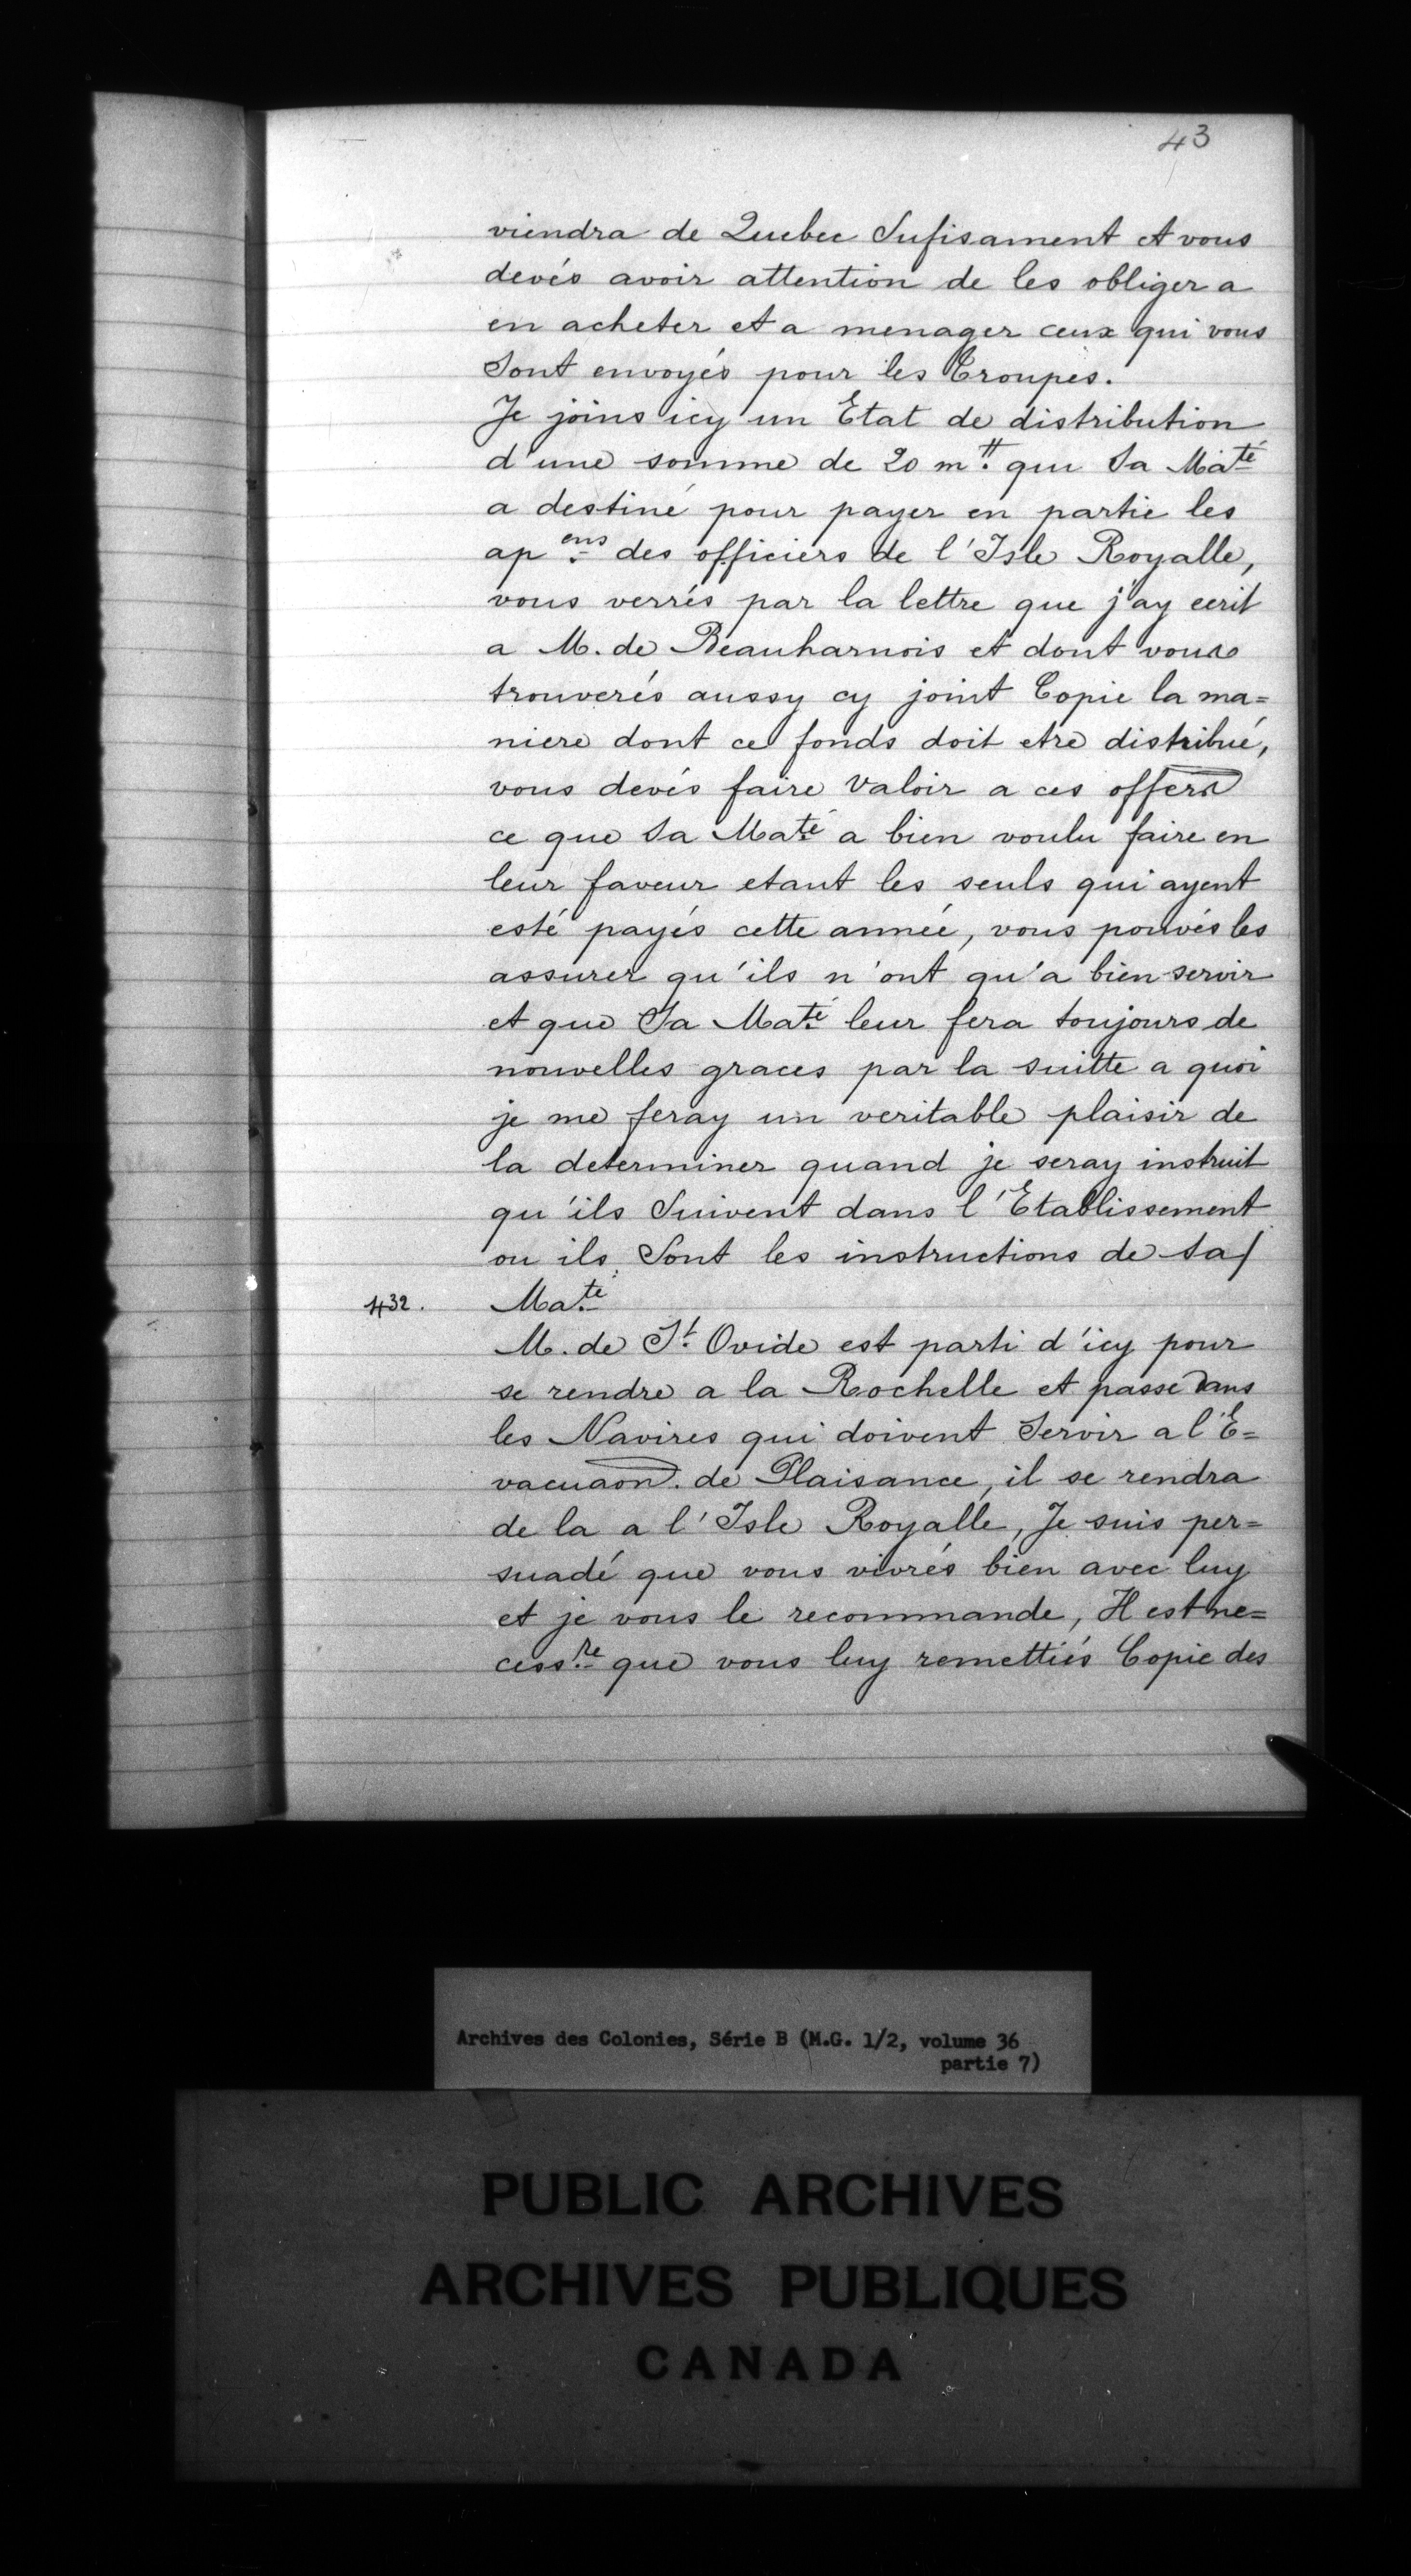 43
viendra de Quebec Sufisament et vous
devés avoir attention de les obliger a
en acheter et a menager ceux qui vous
Sont envoyés pour les Troupes.
Je joins icy un Etat de distribution
d'une somme de 20 m ₶. que Sa Maté
a destiné pour payer en partie les
ap.ens des officiers de l'Isle Royalle,
vous verrés par la lettre que j'ay ecrit
a M. de Beauharnois et dont vous
trouverés aussy cy joint Copie la ma=
niere dont ce fonds doit etre distribué,
vous devés faire valoir a ces offers
ce que Sa Maté a bien voulu faire en
leur faveur etant les seuls qui ayent
esté payés cette année, vous pouvés les
assurer qu'ils n'ont qu'a bien servir
et que Sa Maté leur fera toujours de
nouvelles graces par la suitte a quoi
je me feray un veritable plaisir de
la determiner quand je seray instruit
qu'ils Suivent dans l'Etablissement
ou ils Sont les instructions de Sa/
432. Maté
M. de St. Ovide est parti d'icy pour
se rendre a la Rochelle et passe dans
les Navires qui doivent Servir a l'E=
vacuaon. de Plaisance, il se rendra
de la a l'Isle Royalle, Je suis per=
suadé que vous vivrés bien avec luy
et je vous le recommande, Il est ne=
cess.re que vous luy remettiés Copie des
Archives des Colonies, Série B (M.G. 1/2, volume 36
partie 7)
PUBLIC ARCHIVES
ARCHIVES PUBLIQUES
CANADA